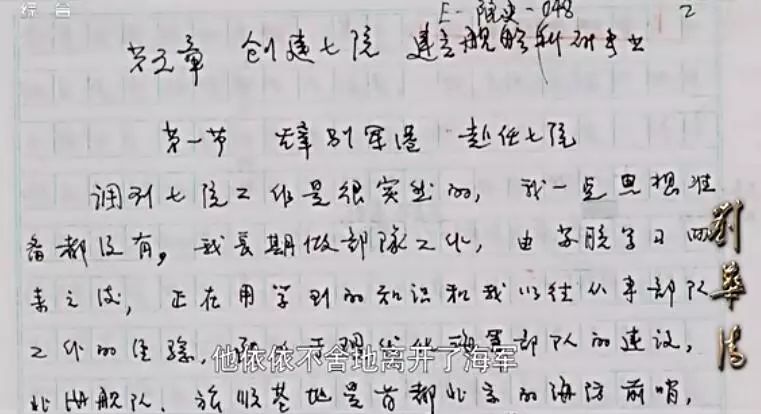 综合
E-院史-048
2
第章 创建七院 建立舰船科研事业
第一节 辞别军港 赴任七院
调到七院工作是很突然的，我一点思想准
备都没有。我长期做部队工作，由学习回
来之后，正在用学到的知识和我以往从事部队
工作的经验，部队的建设，
他依依不舍地离开了海军
北海舰队、旅顺基地是首都北京的海防前哨，
劉華清